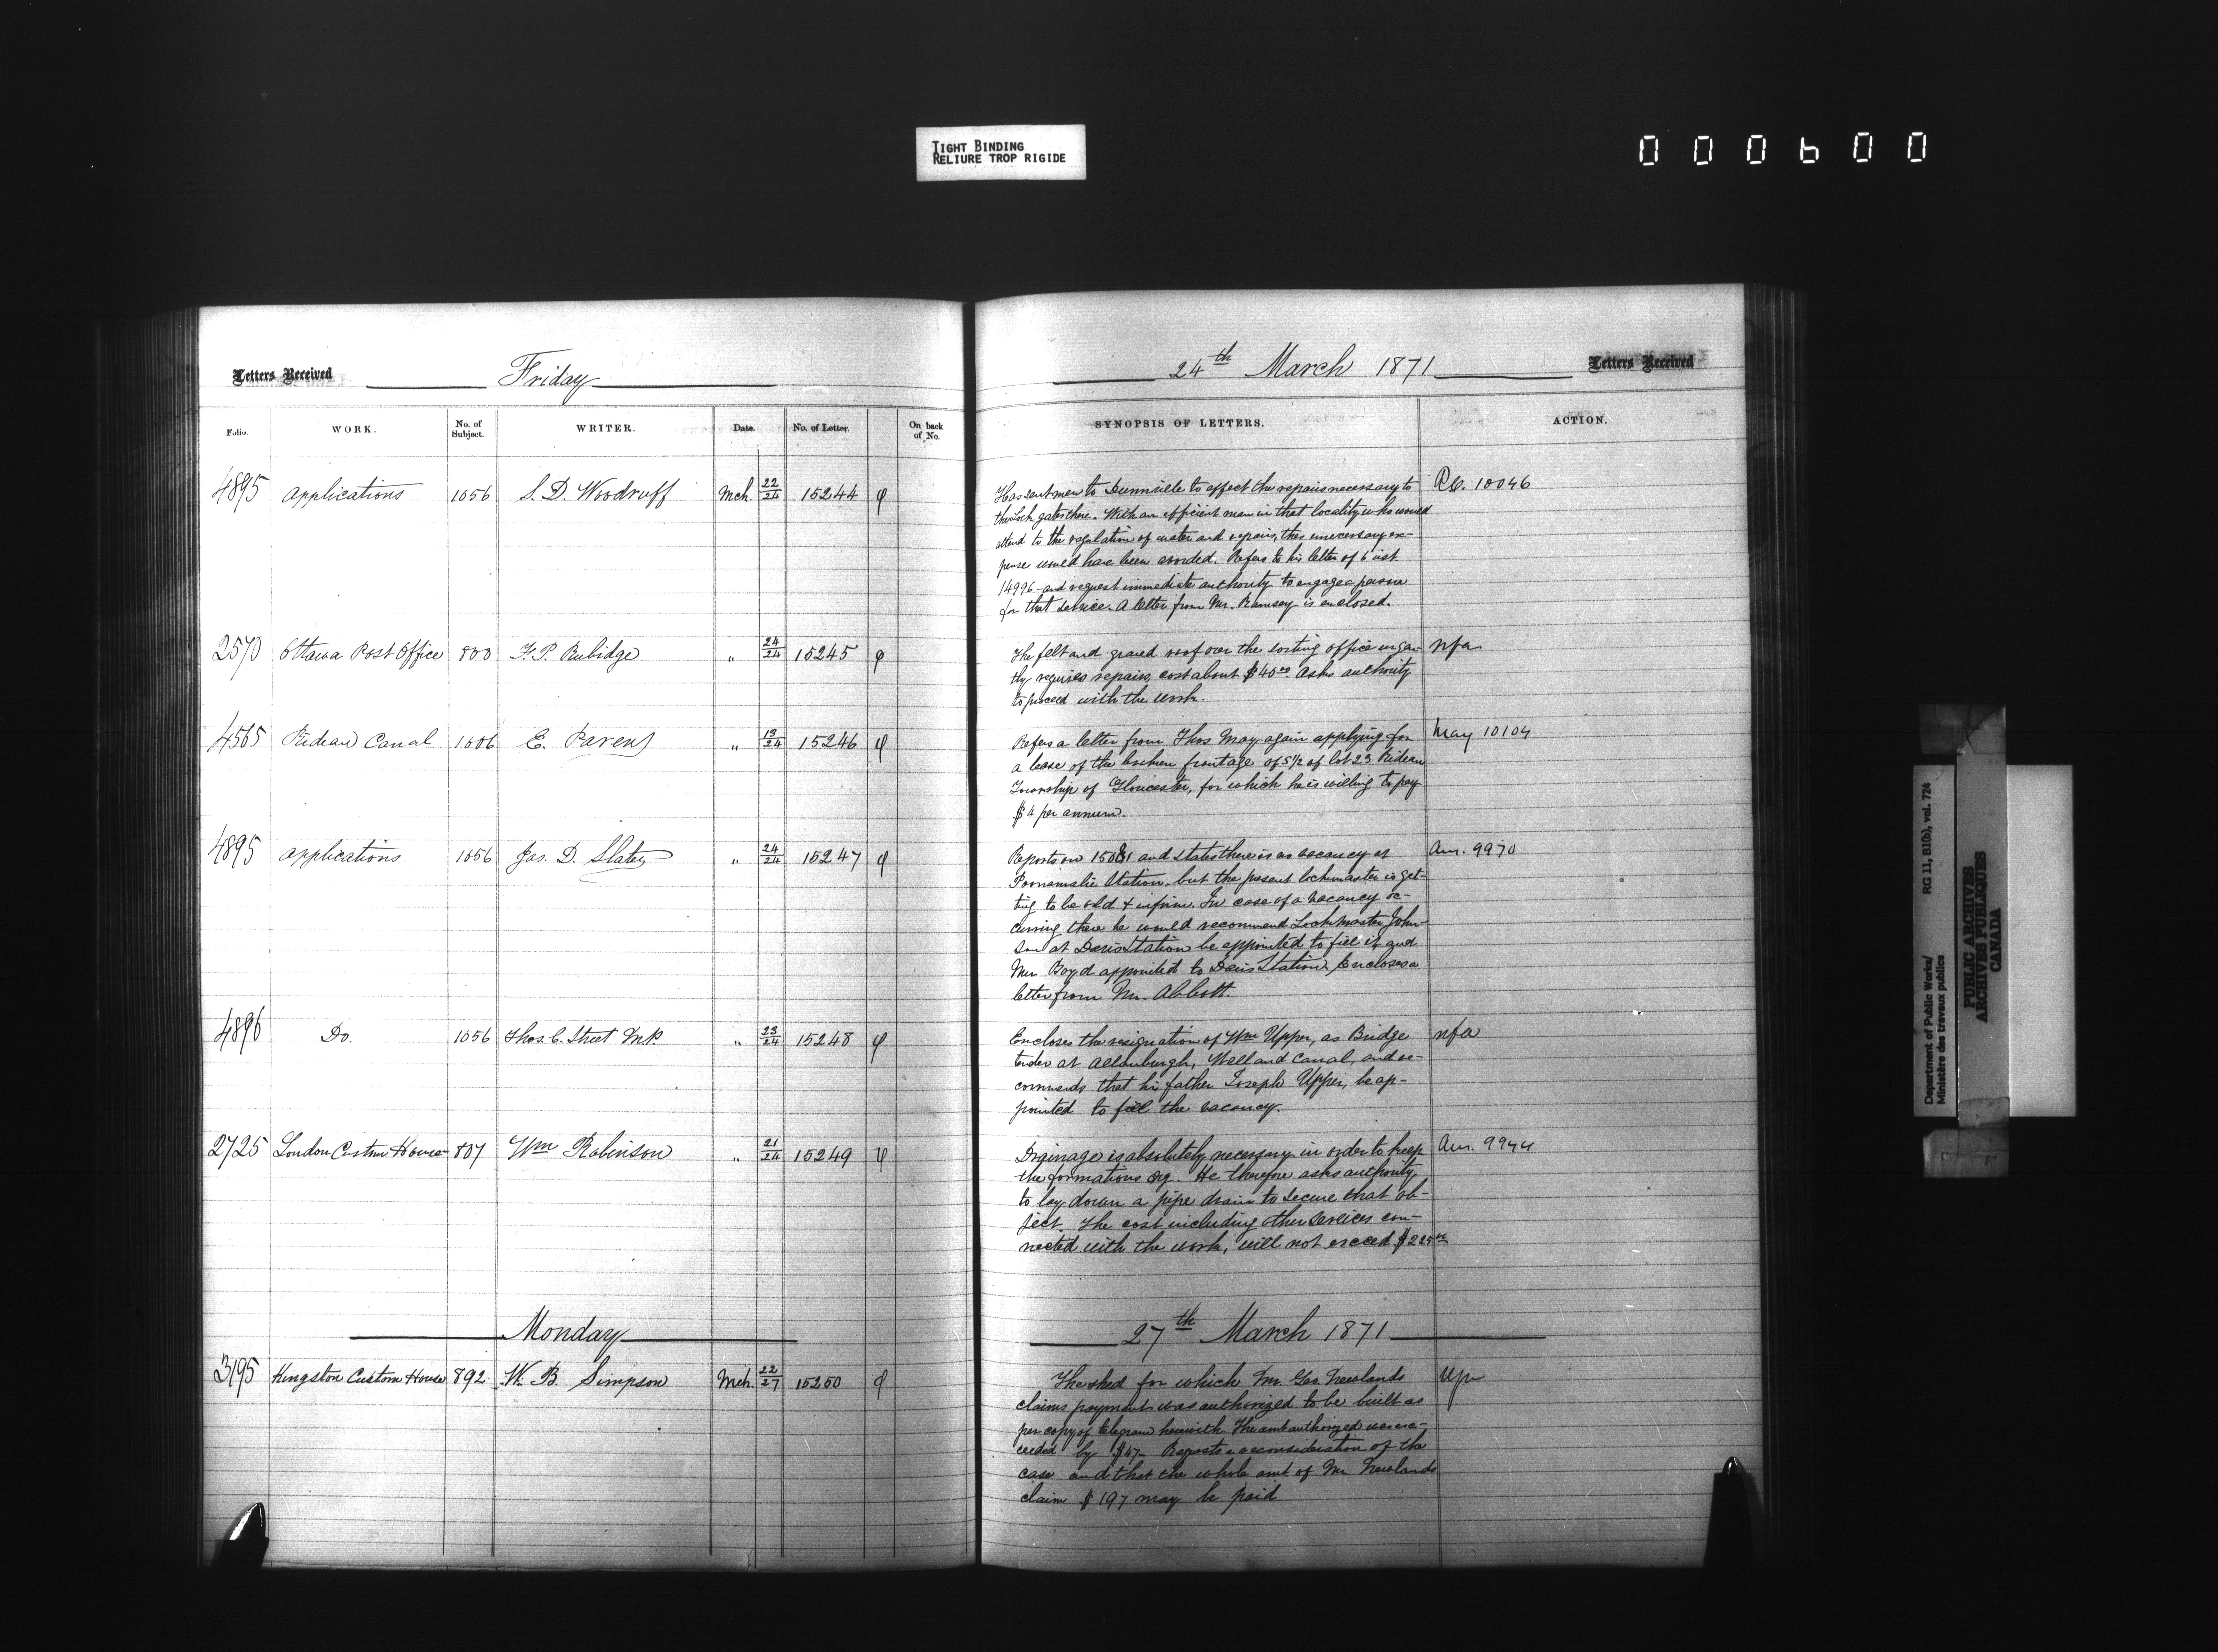 TIGHT BINDING
RELIURE TROP RIGIDE
000600
Letters Received
Friday
24th March 1871
Letters Received
Folio. WORK. No. of Subject. WRITER. Date. No. of Letter. On back of No. SYNOPSIS OF LETTERS. ACTION.
4895 Applications 1056 S. D. Woodruff Mch. 22/24 15244 φ
Has sent men to Dunnville to effect the repairs necessary to R.C. 10046
the Lock gates there. With an efficient man in that locality who would
attend to the regulation of water and repairs, this unnecessary ex-
pense would have been avoided. Refers to his letter of 6 inst
14996 and request immediate authority to engage a person
for that service. A letter from Mr. Ramsey is enclosed.
2570 Ottawa Post Office 800 F. P. Rubidge " 24/24 15245 φ
The felt and gravel roof over the sorting office urgen- nfa
tly requires repairs, cost about $40.00 Asks authority
to proceed with the work.
4565 Rideau Canal 1006 E. Parent " 13/24 15246 φ
Refers a letter from Thos May again applying for May 10104
a lease of the broken frontage of S 1/2 of lot 23 Rideau
Township of Gloucester, for which he is willing to pay
$4 per annum.
4895 Applications 1056 Jas. D. Slater " 24/24 15247 φ
Reports on 15081 and states there is no vacancy at Anr. 9970
Poonamalie Station, but the present lockmaster is get-
ting to be old & infirm. In case of a vacancy oc-
curring there he would recommend Lockmaster John-
son at Davis Station be appointed to fill it, and
Mr Boyd appointed to Davis Station. Encloses a
letter from Mr. Abbott.
4896 Do. 1056 Thos. C. Street M.P. " 23/24 15248 φ
Encloses the resignation of Wm Upper, as Bridge nfa
tender at Allanburgh, Welland Canal, and re-
commends that his father Joseph Upper, be ap-
pointed to fill the vacancy.
2725 London Custom House 807 Wm Robinson " 21/24 15249 φ
Drainage is absolutely necessary in order to keep Anr. 9944
the formations dry. He therefore asks authority
to lay down a pipe drain to secure that ob-
ject. The cost including other services con-
nected with the work, will not exceed $225.00
Monday
27th March 1871
3195 Kingston Custom House 892 W. B. Simpson Mch. 22/27 15250 φ
The shed for which Mr. Geo. Newlands
claims payment was authorized to be built as
per copy of telegram herewith. The amt authorized was ex-
ceeded by $47. Requests a reconsideration of the
case and that the whole amt. of Mr Newlands
claim $197 may be paid
Department of Public Works/ RG 11, B1(b), vol. 724
Ministère des travaux publics
PUBLIC ARCHIVES
ARCHIVES PUBLIQUES
CANADA